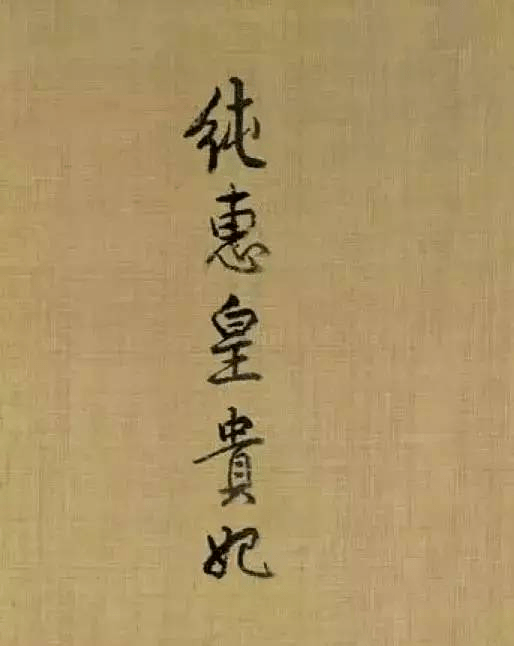 純惠皇貴妃